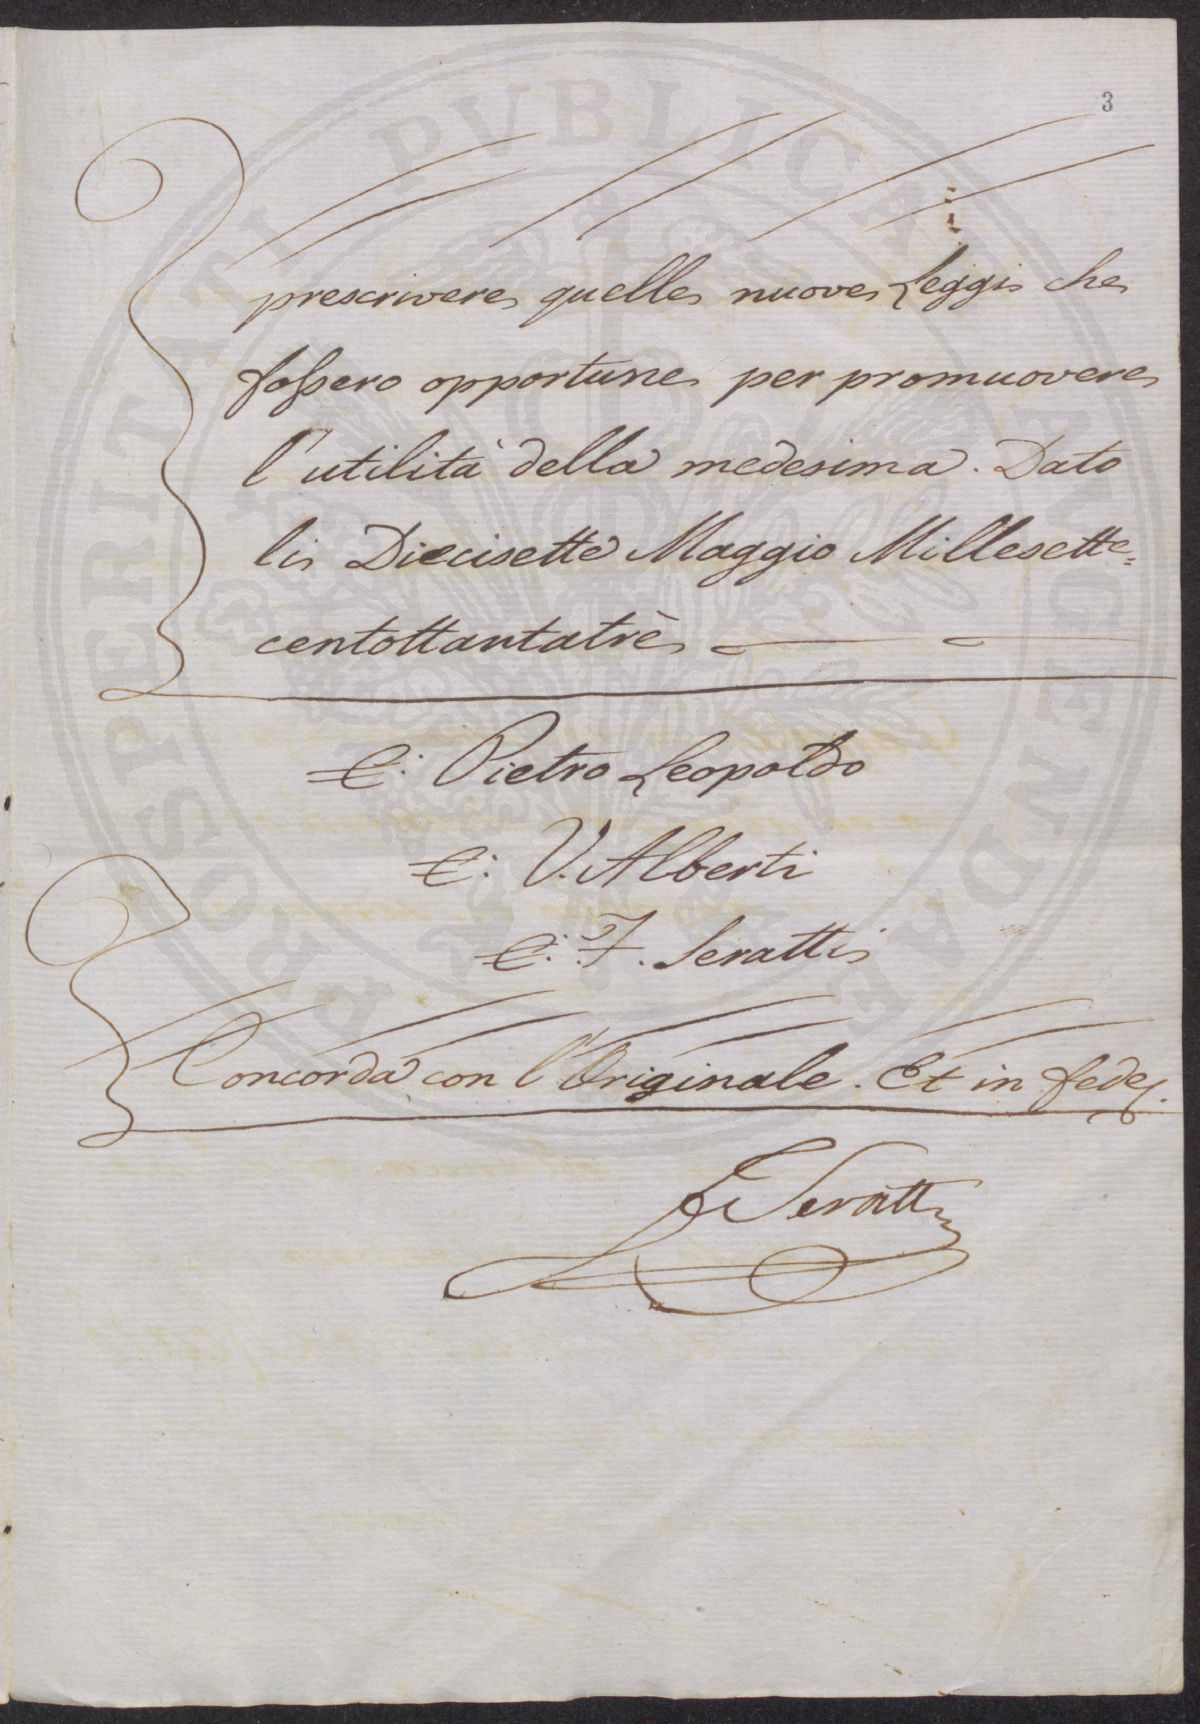 3
prescrivere quelle nuove Leggi che
fossero opportune per promuovere
l'utilità della medesima. Dato
li Diecisette Maggio Millesette=
centottantatrè
C: Pietro Leopoldo
C: V. Alberti
C: F. Seratti
Concorda con l'Originale. Et in fede.
F Seratti
PROSPERITATI PVBLICAE AVGENDAE